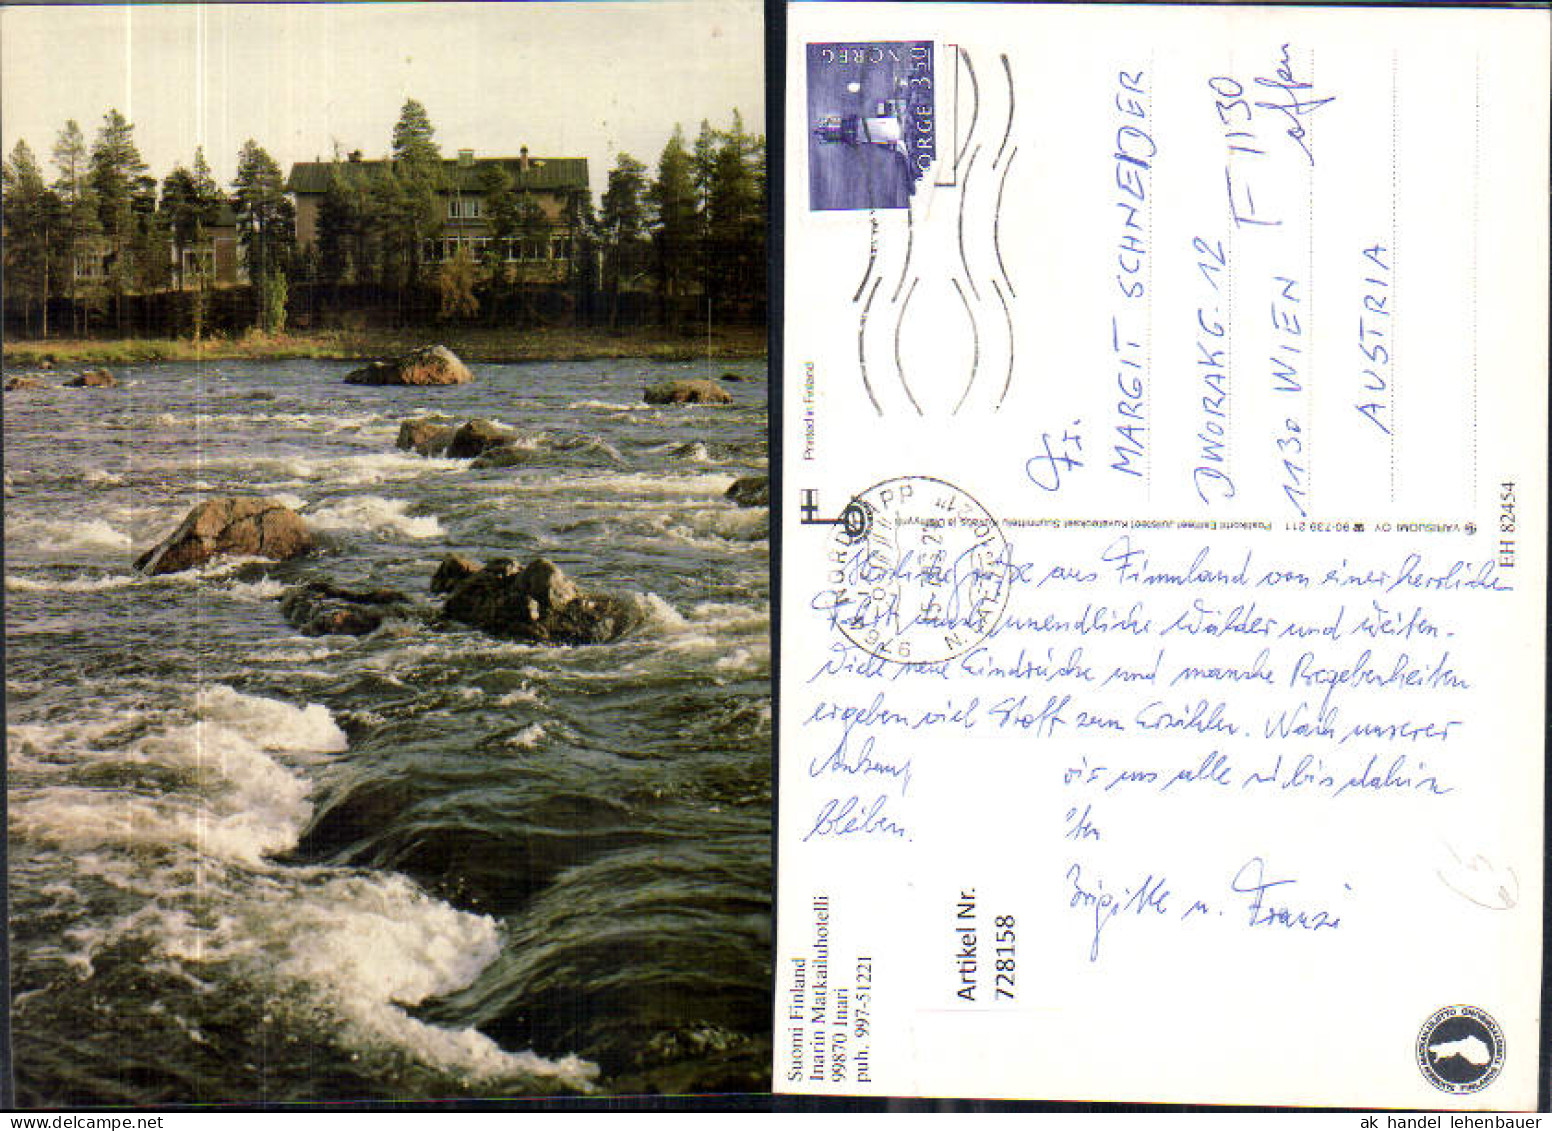 NOREG
NORGE 350
Printed in Finland
Fr.
MARGIT SCHNEIDER
DWORAKG. 12
1130 WIEN
AUSTRIA
F 1130
offen
VARISUOMI OY ☎ 90-739 211
EH 82454
NORDKAPP
Herzliche Grüße aus Finnland von einer herrlichen
Fahrt durch unendliche Wälder und Weiten.
Viele neue Eindrücke und manche Begebenheiten
ergeben viel Stoff zum Erzählen. Nach unserer
uns alle u bis dahin
Bleiben.
Brigitte u. Franzi
Artikel Nr.
728158
Suomi Finland
Inarin Matkailuhotelli
99870 Inari
puh. 997-51221
ak handel lehenbauer